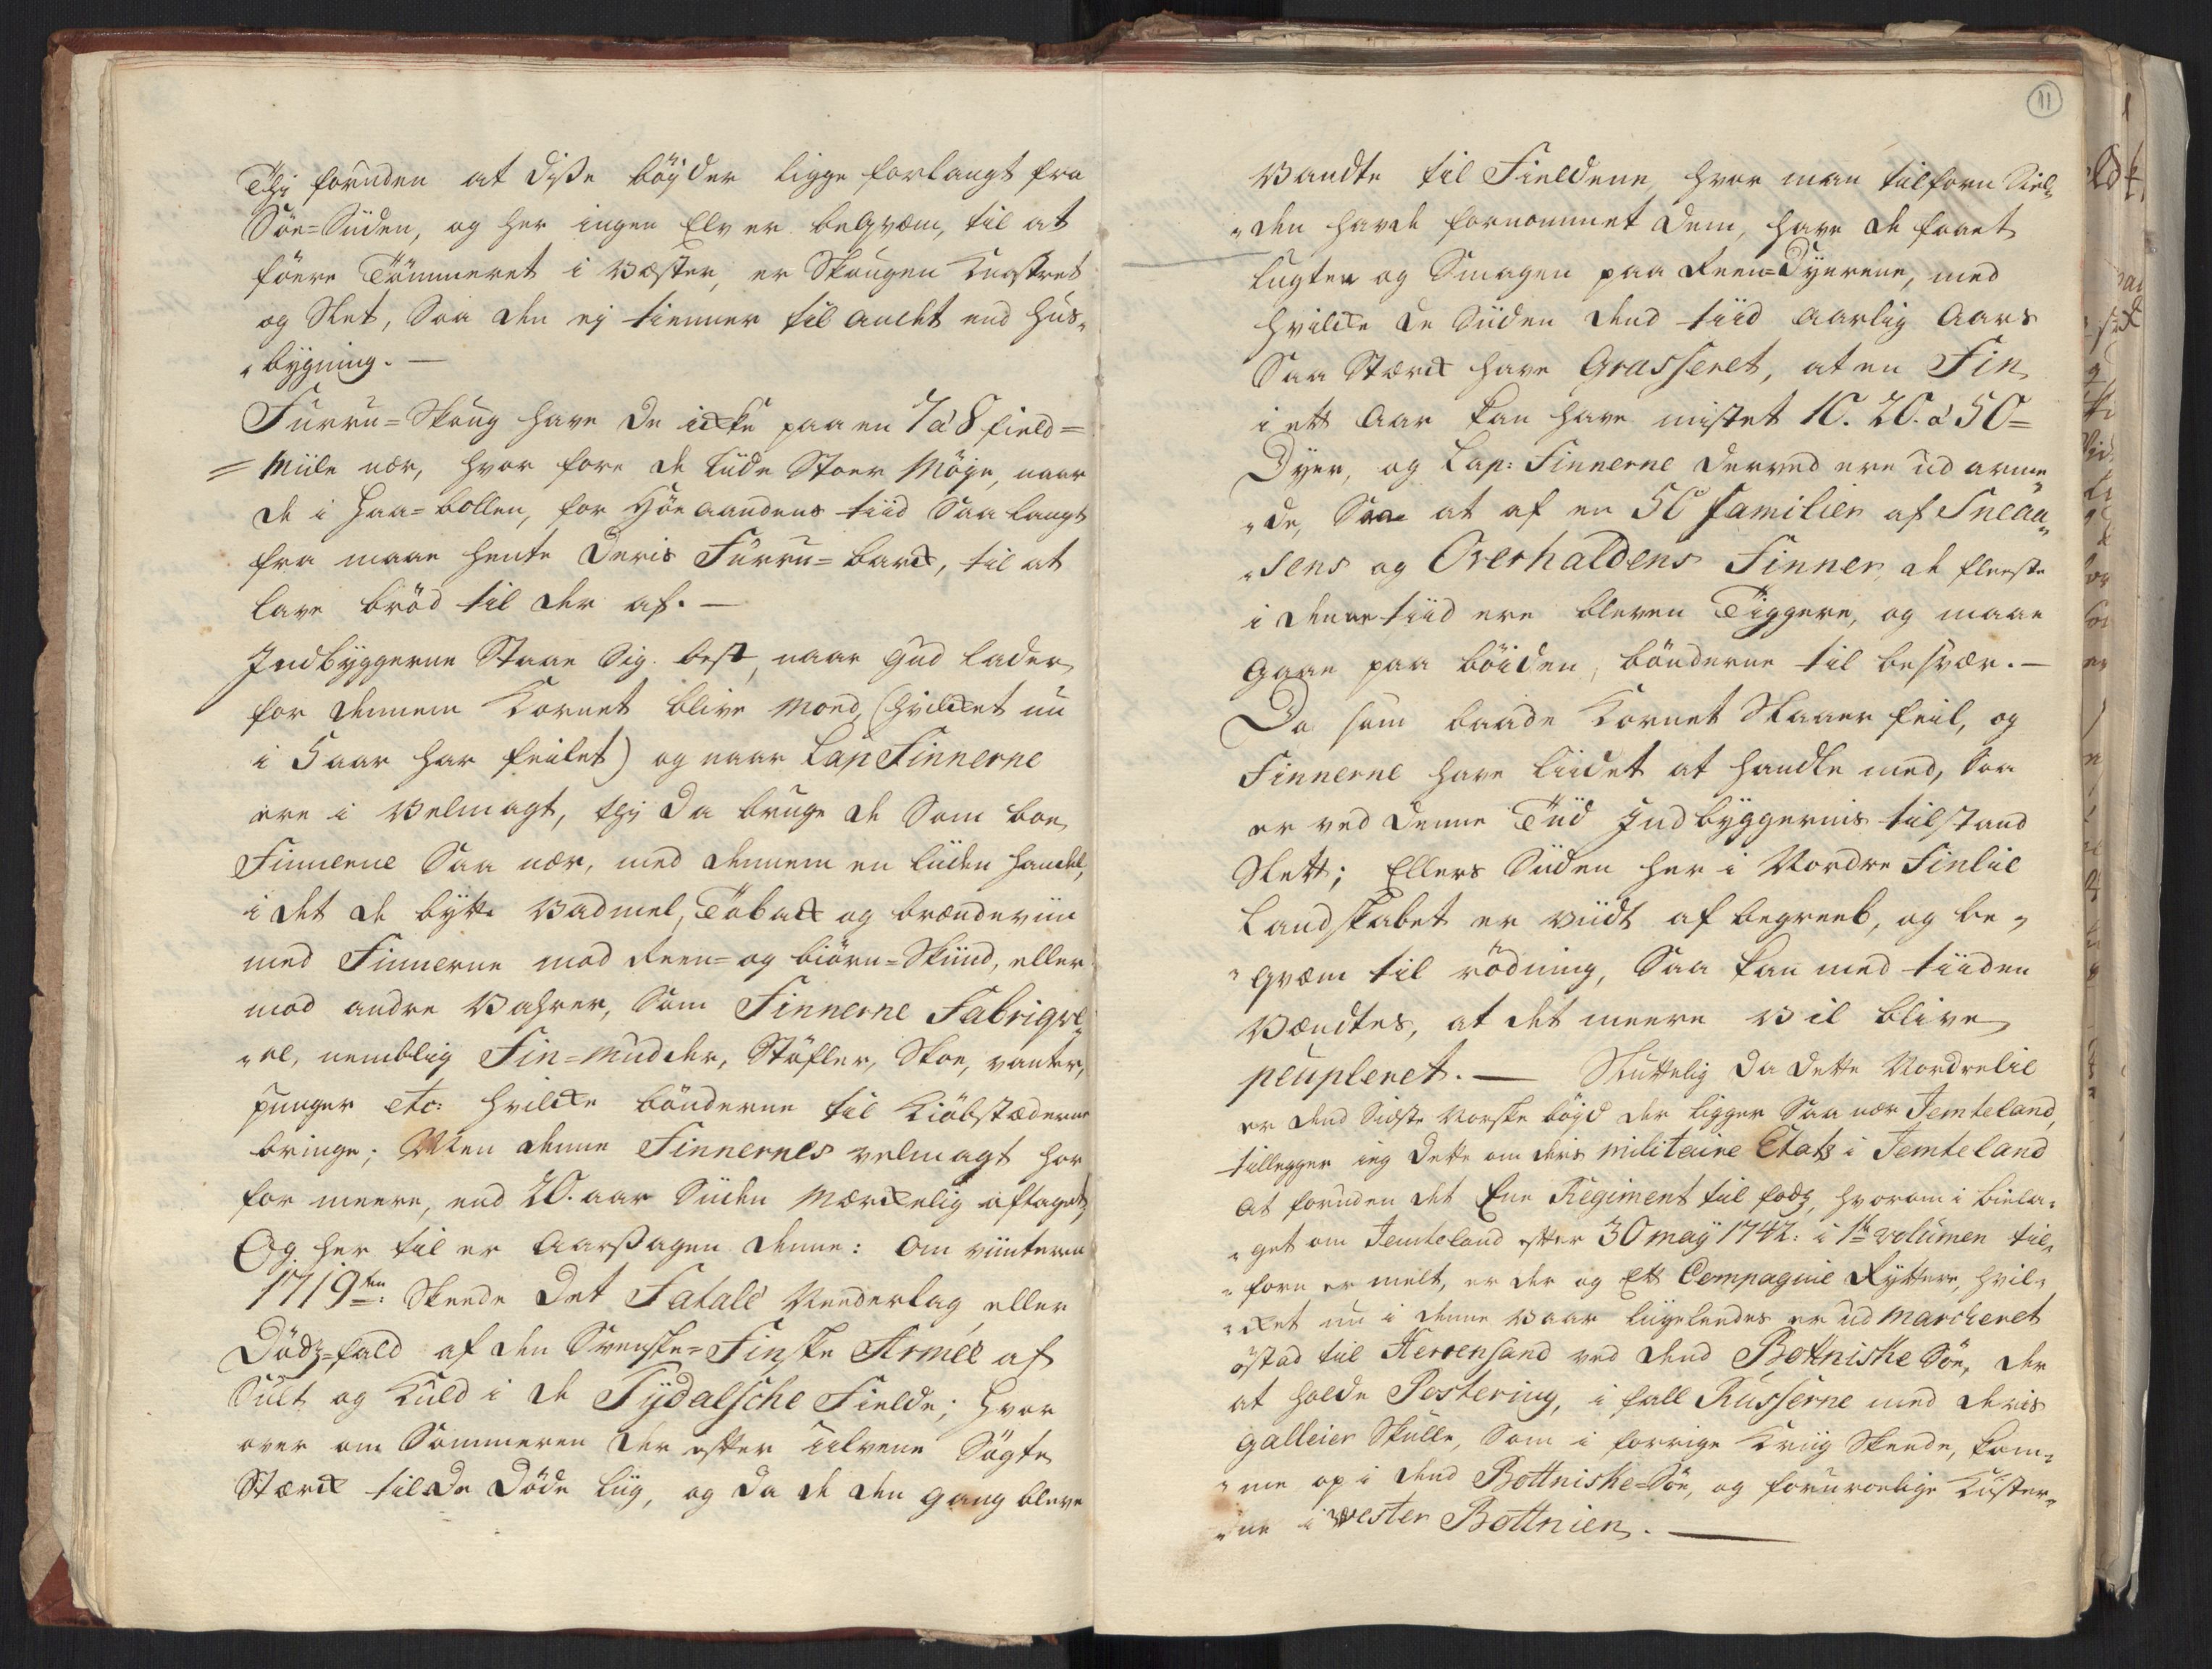 Thj foruden at disse böyder ligge forlangt fra
Söe-Siiden, og her ingen Elv er beqvæm, til at
föere Tömmeret i Vester, er Skougen Knastret
og Slet, Saa den ej tienner til andet end Huus
bygning. —
Furru-Skoug have de icke paa en 7 à 8 field-
Miile nær, hvor fore de liide Stoer Möye, naar
de i Haa-bollen, for Höe aandens tiid Saa langt
fra maae hente deris Furru-barck, til at
lave bröd til der af. —
Indbyggerne Staae Sig best, naar Gud lader
for dennem Kornet blive Moed, (hvilcket nu
i 5 aar har feilet) og naar Lap Finnerne
ere i Velmagt, thj da bruge de Som boe
Finnerne Saa nær, med dennem en liiden handel,
i det de bytte Vadmel, Toback og brændeviin
med Finnerne mod Reen- og biörn-Skiind, eller
mod andre Vahrer, Som Finnerne Fabriqve
rel, nemblig Fin-mudder, Stöfler, Skoe, vanter,
punger etc: hvilcke bönderne til Kiöbstæderne
bringe; Men denne Finnernes velmagt har
for meere, end 20. aar Siiden Mærckelig aftaget,
Og her til er Aarsagen denne: Om viinteren
1719ten: Skeede det Fatale Nederlag eller
Dödz-fald af den Svenske-Finske Armée af
Sult og Kuld i de Tÿdalsche Fielde; hvor
over om Sommeren der efter Ulvene Sögte
Stærck til de Döde Liig, og da de den gang bleve
11
Vandte til Fieldene, hvor man tilforn Siel
den havde fornommet dem, have de faaet
Lugten og Smagen paa Reen-Dyerene, med
hvilcke de Siiden dend tiid Aarlig Aars
Saa Stærck have Grasseret, at en Fin
i ett Aar kan have mistet 10. 20. à 50-
Dyer, og Lap: Finnerne derved ere ud arme
de, Saa at af en 50 familier af Sneaa
sens og Overhaldens Finner, de fleeste
i denne tiid ere bleven Tiggere, og maae
Gaae paa böiden, bönderne til besvær. —
Da som baade Kornet Slaaer feil, og
Finnerne have liidet at handle med, Saa
er ved denne Tiid Indbyggernis tilstand
Slett; Ellers Siiden her i Nordre Finlie
Landskabet er viidt af begreeb, og be-
qvæm til rödning, Saa kan med tiiden
Vændtes, at det meere Vil blive
peupleret. — Sluttelig da dette Nordrelie
er dend Sidste Norske böyd der ligger Saa nær Jemteland,
tillegger ieg dette om deris militaire Etatz i Jemteland
At foruden det Ene Regiment til fodz, hvorom i biela-
get om Jemteland efter 30 maÿ 1742: i 1te volumen til
forn er melt, er der og Ett Compagnie Ryttere, hvil-
cket nu i denne Vaar liigeleedes er ud marcheret
östad til Hernsand ved dend Bottniske Söe, der
at holde Postering, i fall Russerne med deris
Galleier Skulle, Som i forrige Kriig Skeede, kom-
me op i dend Bottniske-Söe, og foruroelige Kuster
ne i Wester Bottnien. —